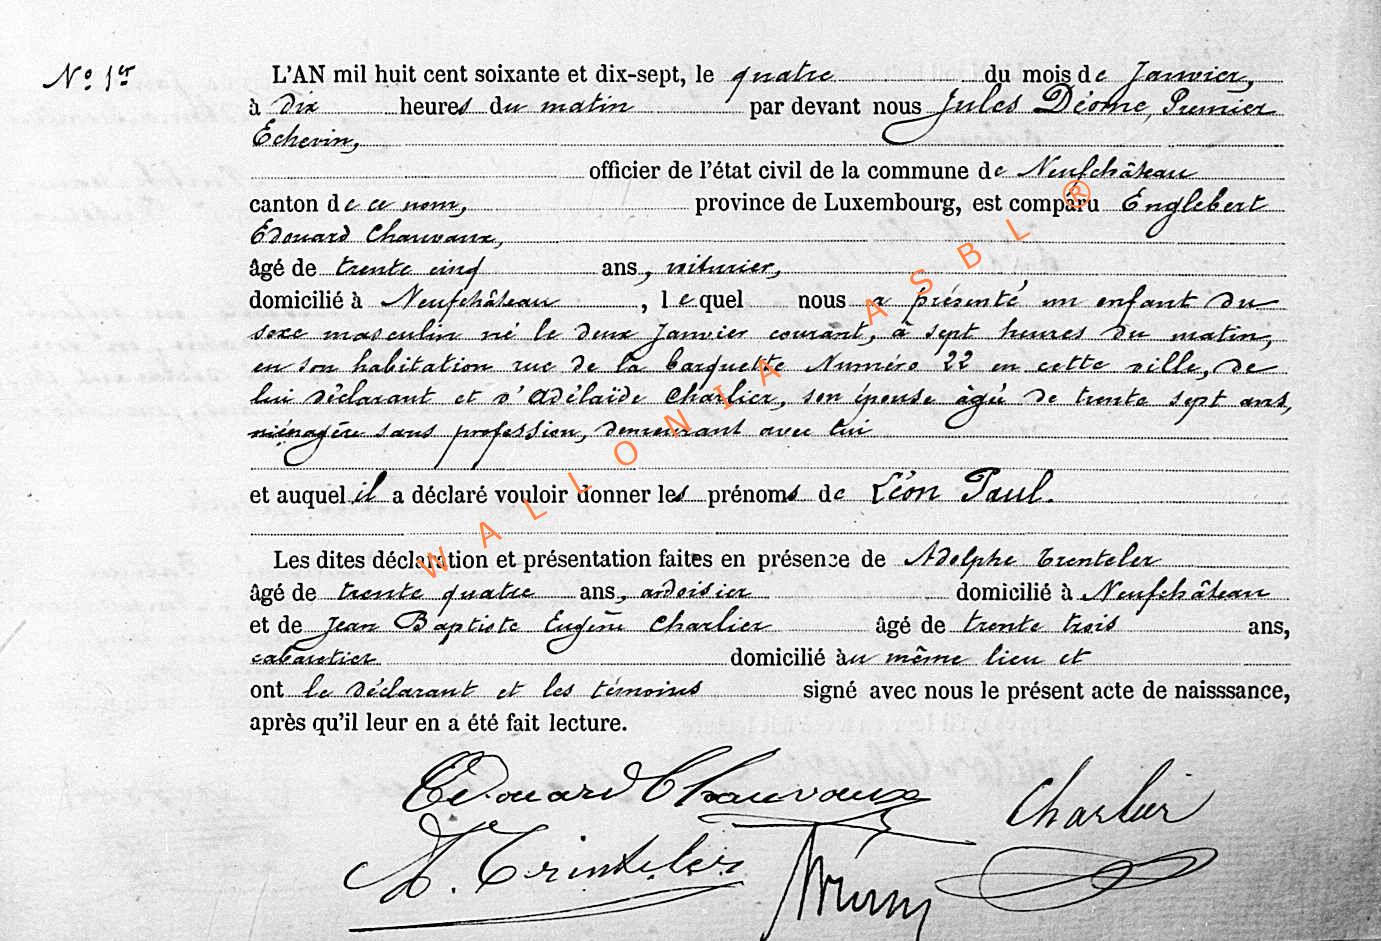 N° 1er
L'AN mil huit cent soixante et dix-sept, le quatre du mois de Janvier,
à dix heures du matin par devant nous Jules Déome, Premier
Echevin,
officier de l'état civil de la commune de Neufchâteau
canton de ce nom, province de Luxembourg, est comparu Englebert
Edouard Chauvaux,
âgé de trente cinq ans, voiturier,
domicilié à Neufchâteau, lequel nous a présenté un enfant du
sexe masculin né le deux Janvier courant, à sept heures du matin,
en son habitation rue de la barquette Numéro 22 en cette ville, de
lui déclarant et d'Adélaïde Charlier, son épouse âgée de trente sept ans,
ménagère sans profession, demeurant avec lui
et auquel il a déclaré vouloir donner les prénoms de Léon Paul.
Les dites déclaration et présentation faites en présence de Adolphe Trenteler
âgé de trente quatre ans, ardoisier domicilié à Neufchâteau
et de Jean Baptiste Eugène Charlier âgé de trente trois ans,
cabaretier domicilié au même lieu et
ont le déclarant et les témoins signé avec nous le présent acte de naisssance,
après qu'il leur en a été fait lecture.
Edouard Chauvaux Charlier
A. Trinteler
WALLONIA ASBL ®